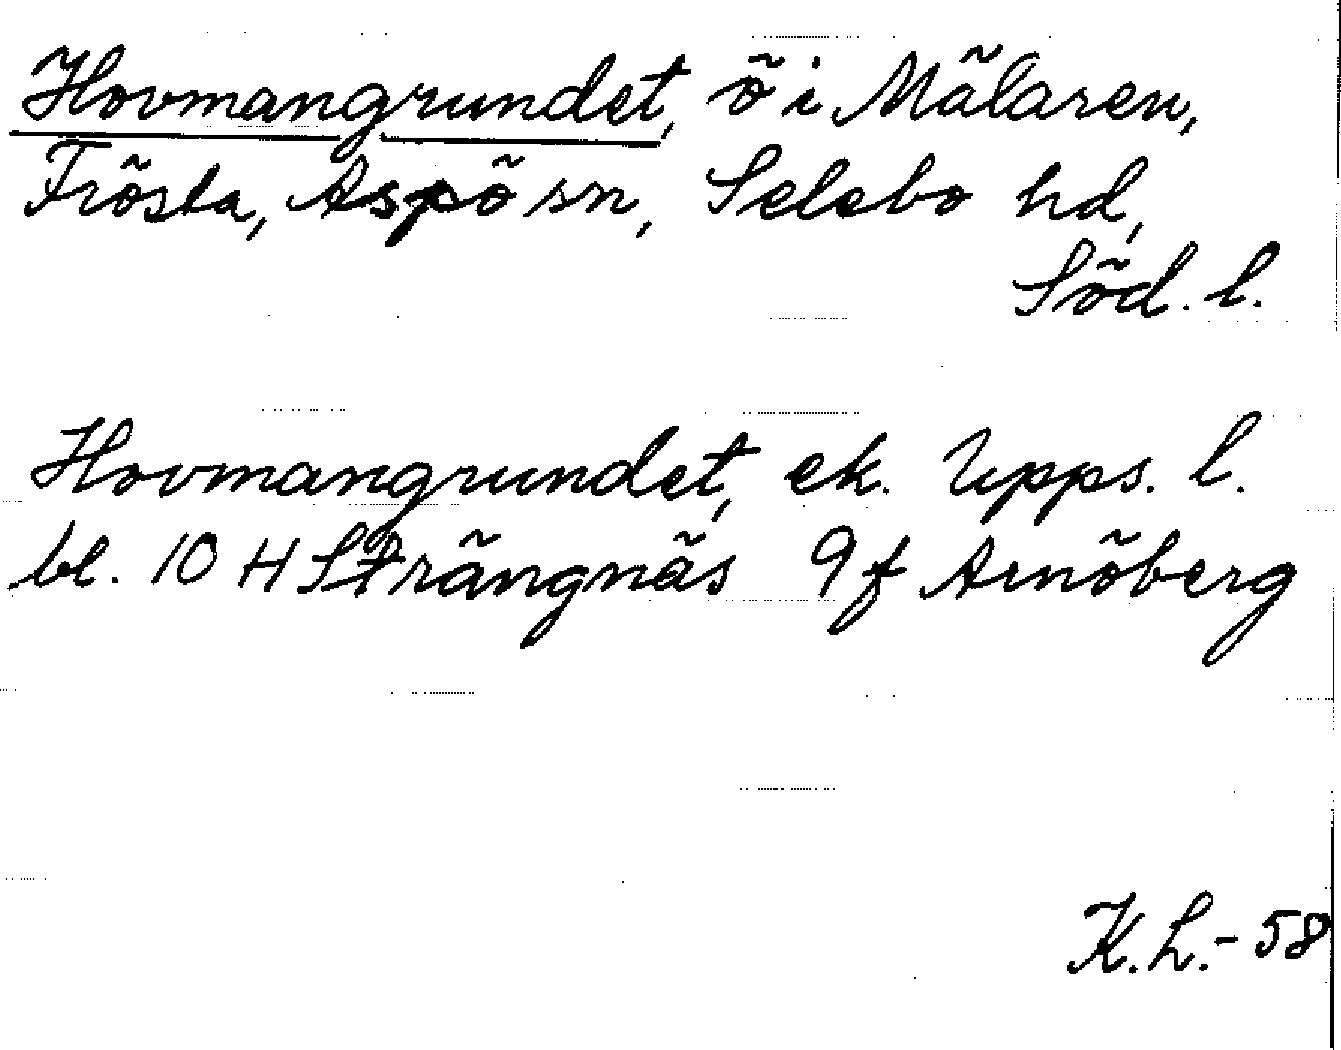 Hovmangrundet, ö i Mälaren,
Frösta, Aspö sn, Selebo hd,
Söd. l.
Hovmangrundet, ek. Upps. l.
bl. 10 H Strängnäs 9f Arnöberg
K.L.-58